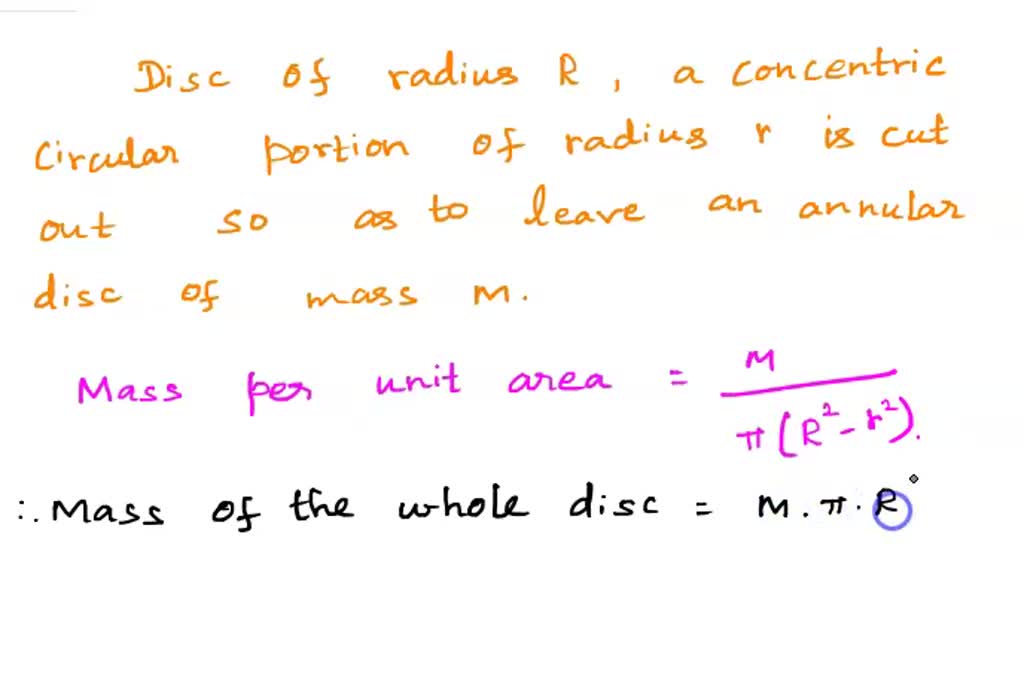 Disc of radius R, a concentric
circular portion of radius r is cut
out so as to leave an annular
disc of mass M.
Mass per unit area = M / π(R² - r²).
∴ Mass of the whole disc = M . π . R